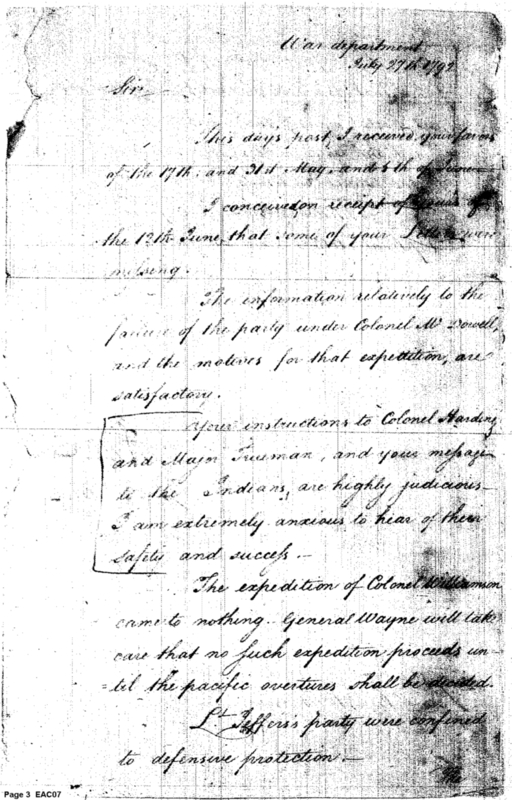 War department
July 27th 1792
Sir
This day's post, I received your favors
of the 17th. and 31st May, and 8th of June
I conceived on receipt of yours of
the 12th June, that some of your Letters were
missing.
The information relatively to the
failure of the party under Colonel Mc Dowell,
and the motives for that expedition, are
satisfactory.
Your instructions to Colonel Hardin
and Major Trueman, and your message
to the Indians, are highly judicious—
I am extremely anxious to hear of their
safety and success.—
The expedition of Colonel Williamson
came to nothing. General Wayne will take
care that no such expedition proceeds un-
=til the pacific overtures shall be decided.
Lt Jeffers's party were confined
to defensive protection.—
Page 3 EAC07